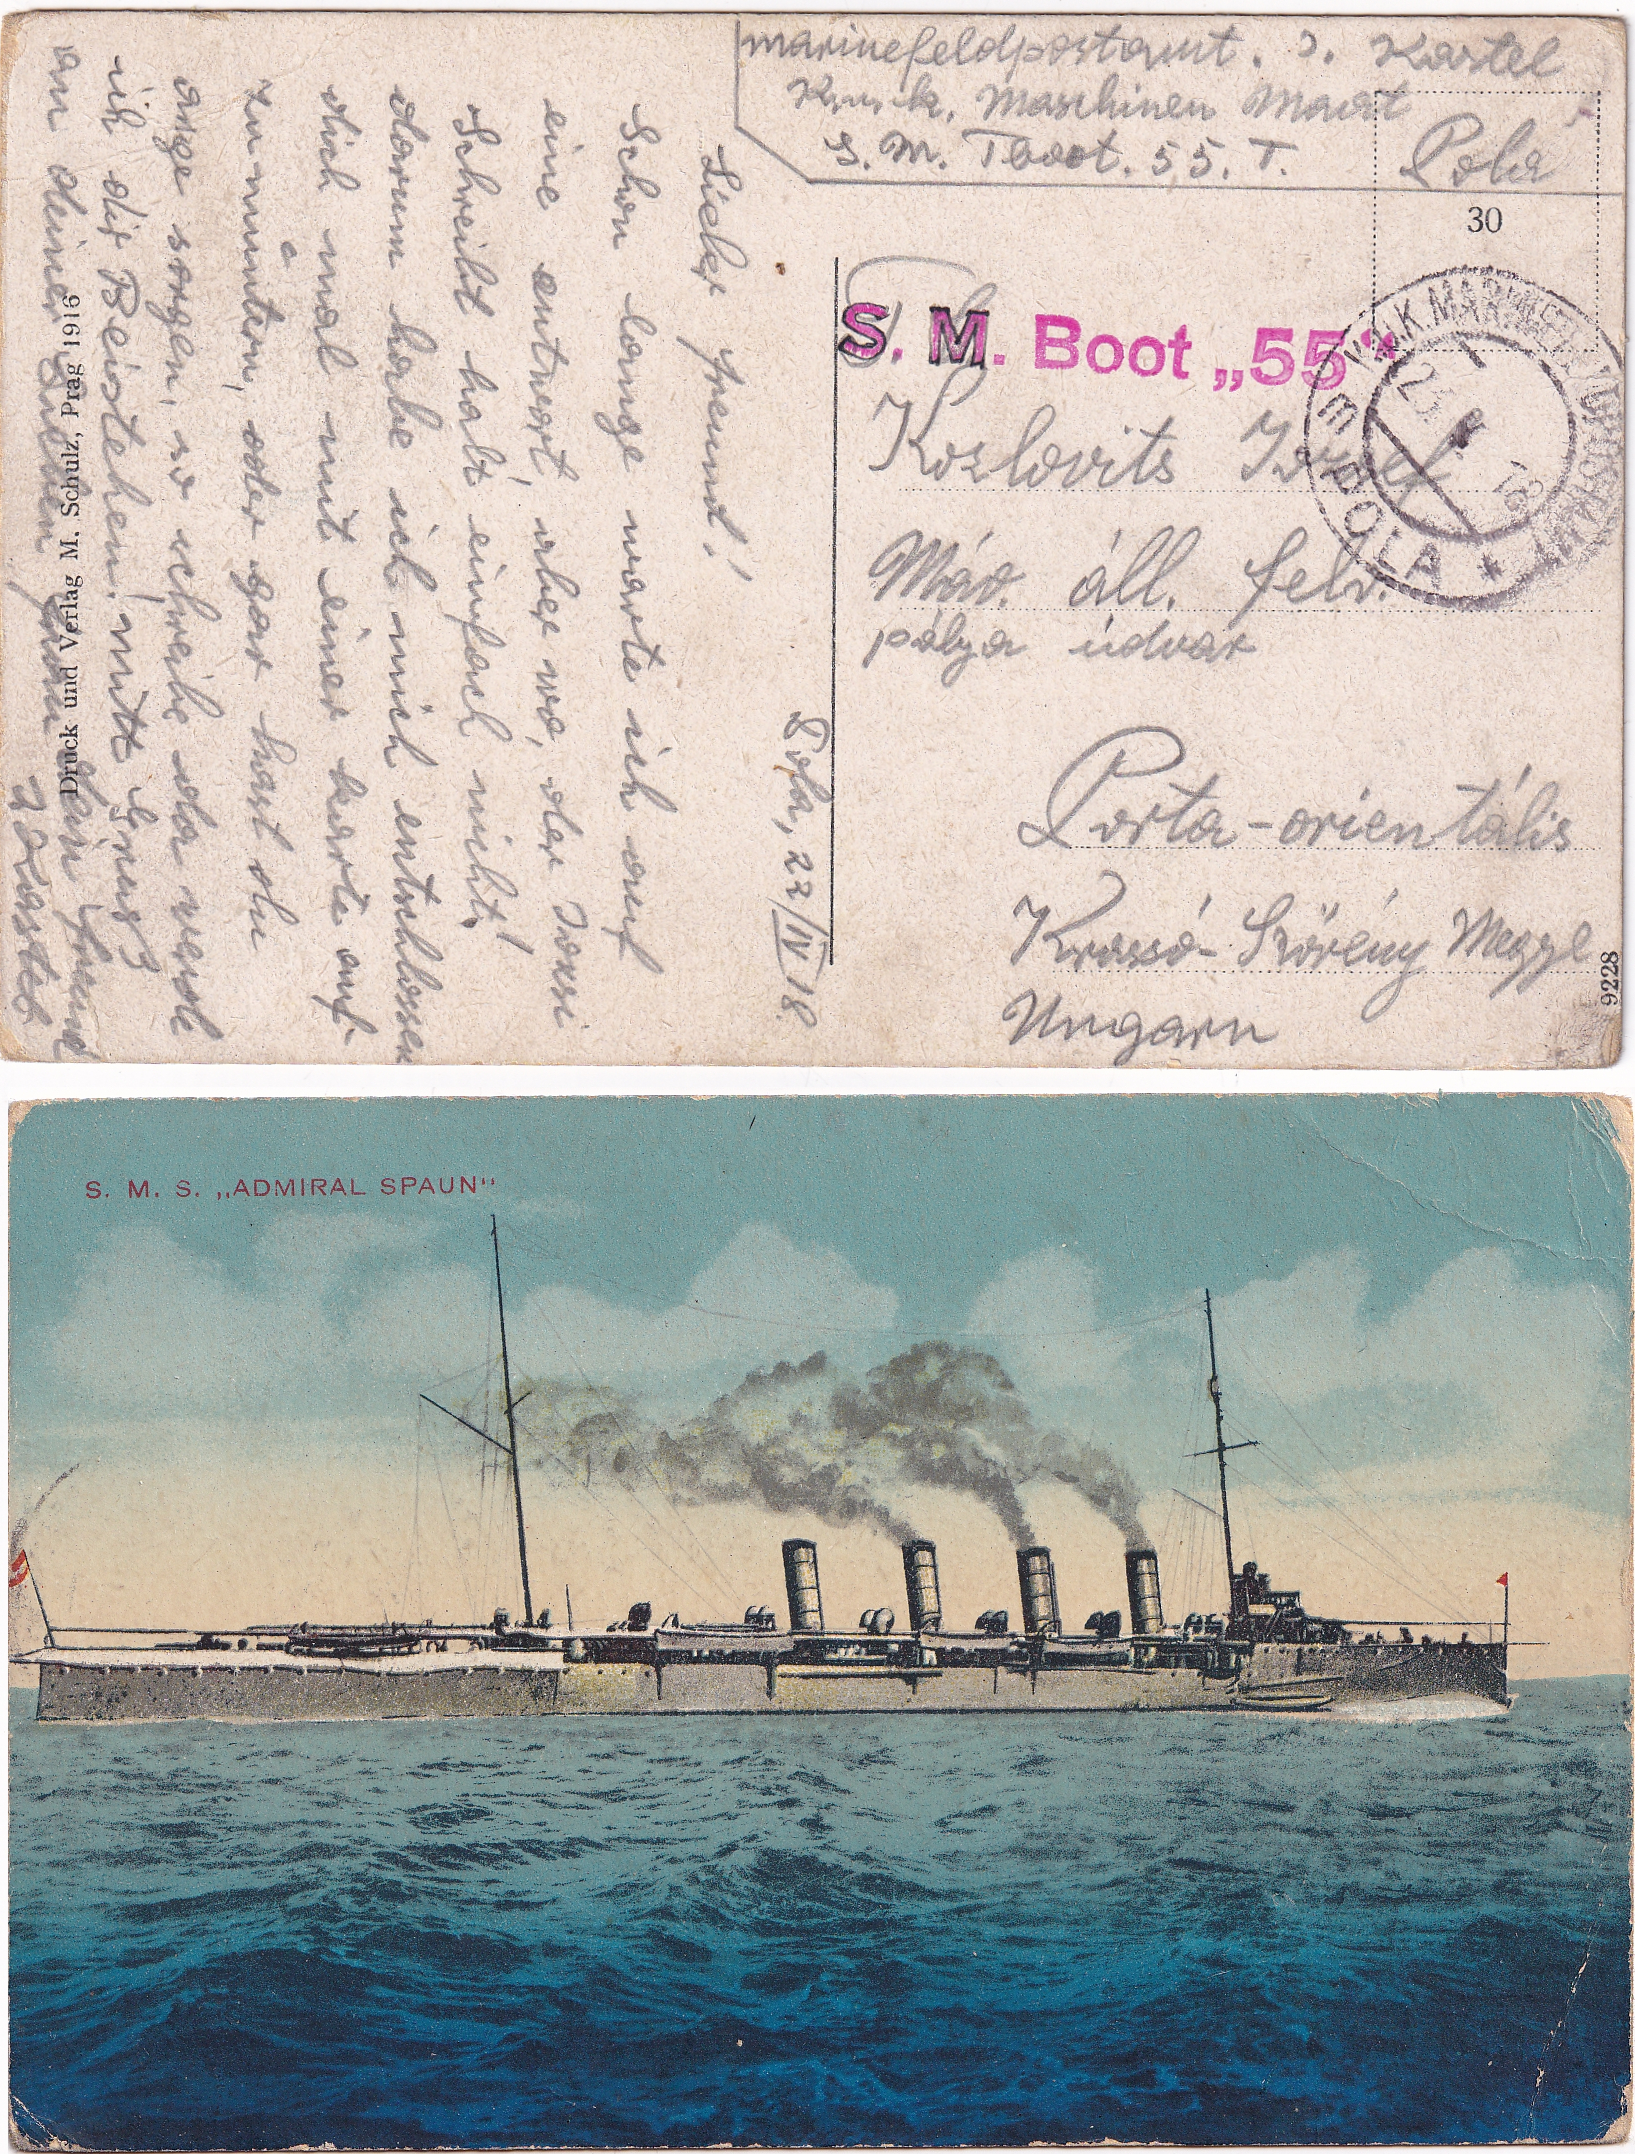 marinefeldpostamt. J. Kastel
K. u. k. Maschinen Maat
S. M. Tboot. 55. T.
Pola
30
S. M. Boot „55“
K.u.K. MARINEFELDPOSTAMT
POLA
Kozlovits József
Máv. áll. felv.
pálya údvar
Porta-orientális
Krassó-Szörény Megye
Ungarn
9228
Pola, 22/IV 18.
Lieber Freund!
Schon lange warte ich auf
eine antwort, aber wo, der
Schreibt halt einfach nicht!
darum habe ich mich entschlossen
dich mal mit einer karte auf-
zumuntern, oder gar hast du
sorgen, so schreibe da werde
ich dir Beistehen, mitt
an deiner
dein Freund
J Kastel
Druck und Verlag M. Schulz, Prag 1916
S. M. S. „ADMIRAL SPAUN“